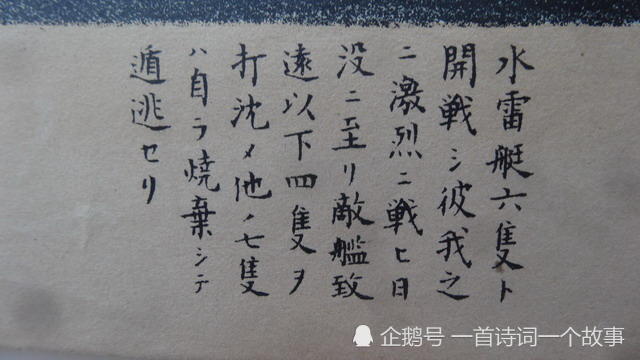 水雷艇六隻ト
開戦シ彼我之
ニ激烈ニ戦ヒ日
没ニ至リ敵艦致
遠以下四隻ヲ
打沈メ他ノ七隻
ハ自ラ焼棄シテ
遁逃セリ
企鹅号 一首诗词一个故事